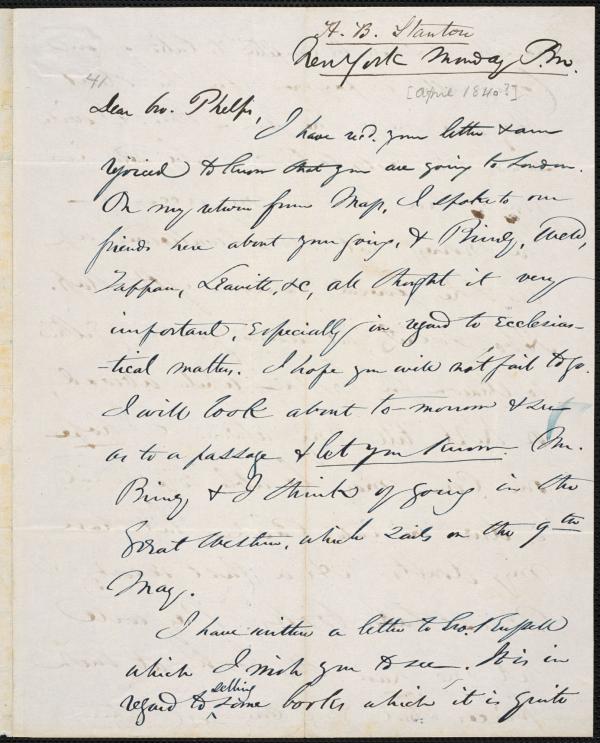 H. B. Stanton
New York Monday P.M.
41
[April 1840?]
Dear bro. Phelps,
I have recd. your letter & am
rejoiced to know that you are going to London.
On my return from Mass, I spoke to our
friends here about your going, & Birney, Weld,
Tappan, Leavitt, &c, all thought it very
important, especially in regard to Ecclesias-
-tical matters. I hope you will not fail to go.
I will look about to-morrow & see
as to a passage & let you know. Mr.
Birney & I think of going in the
Great Western, which sails on the 9th
May.
I have written a letter to bro. Russell
which I wish you to see. It is in
selling
regard to some books which it is quite